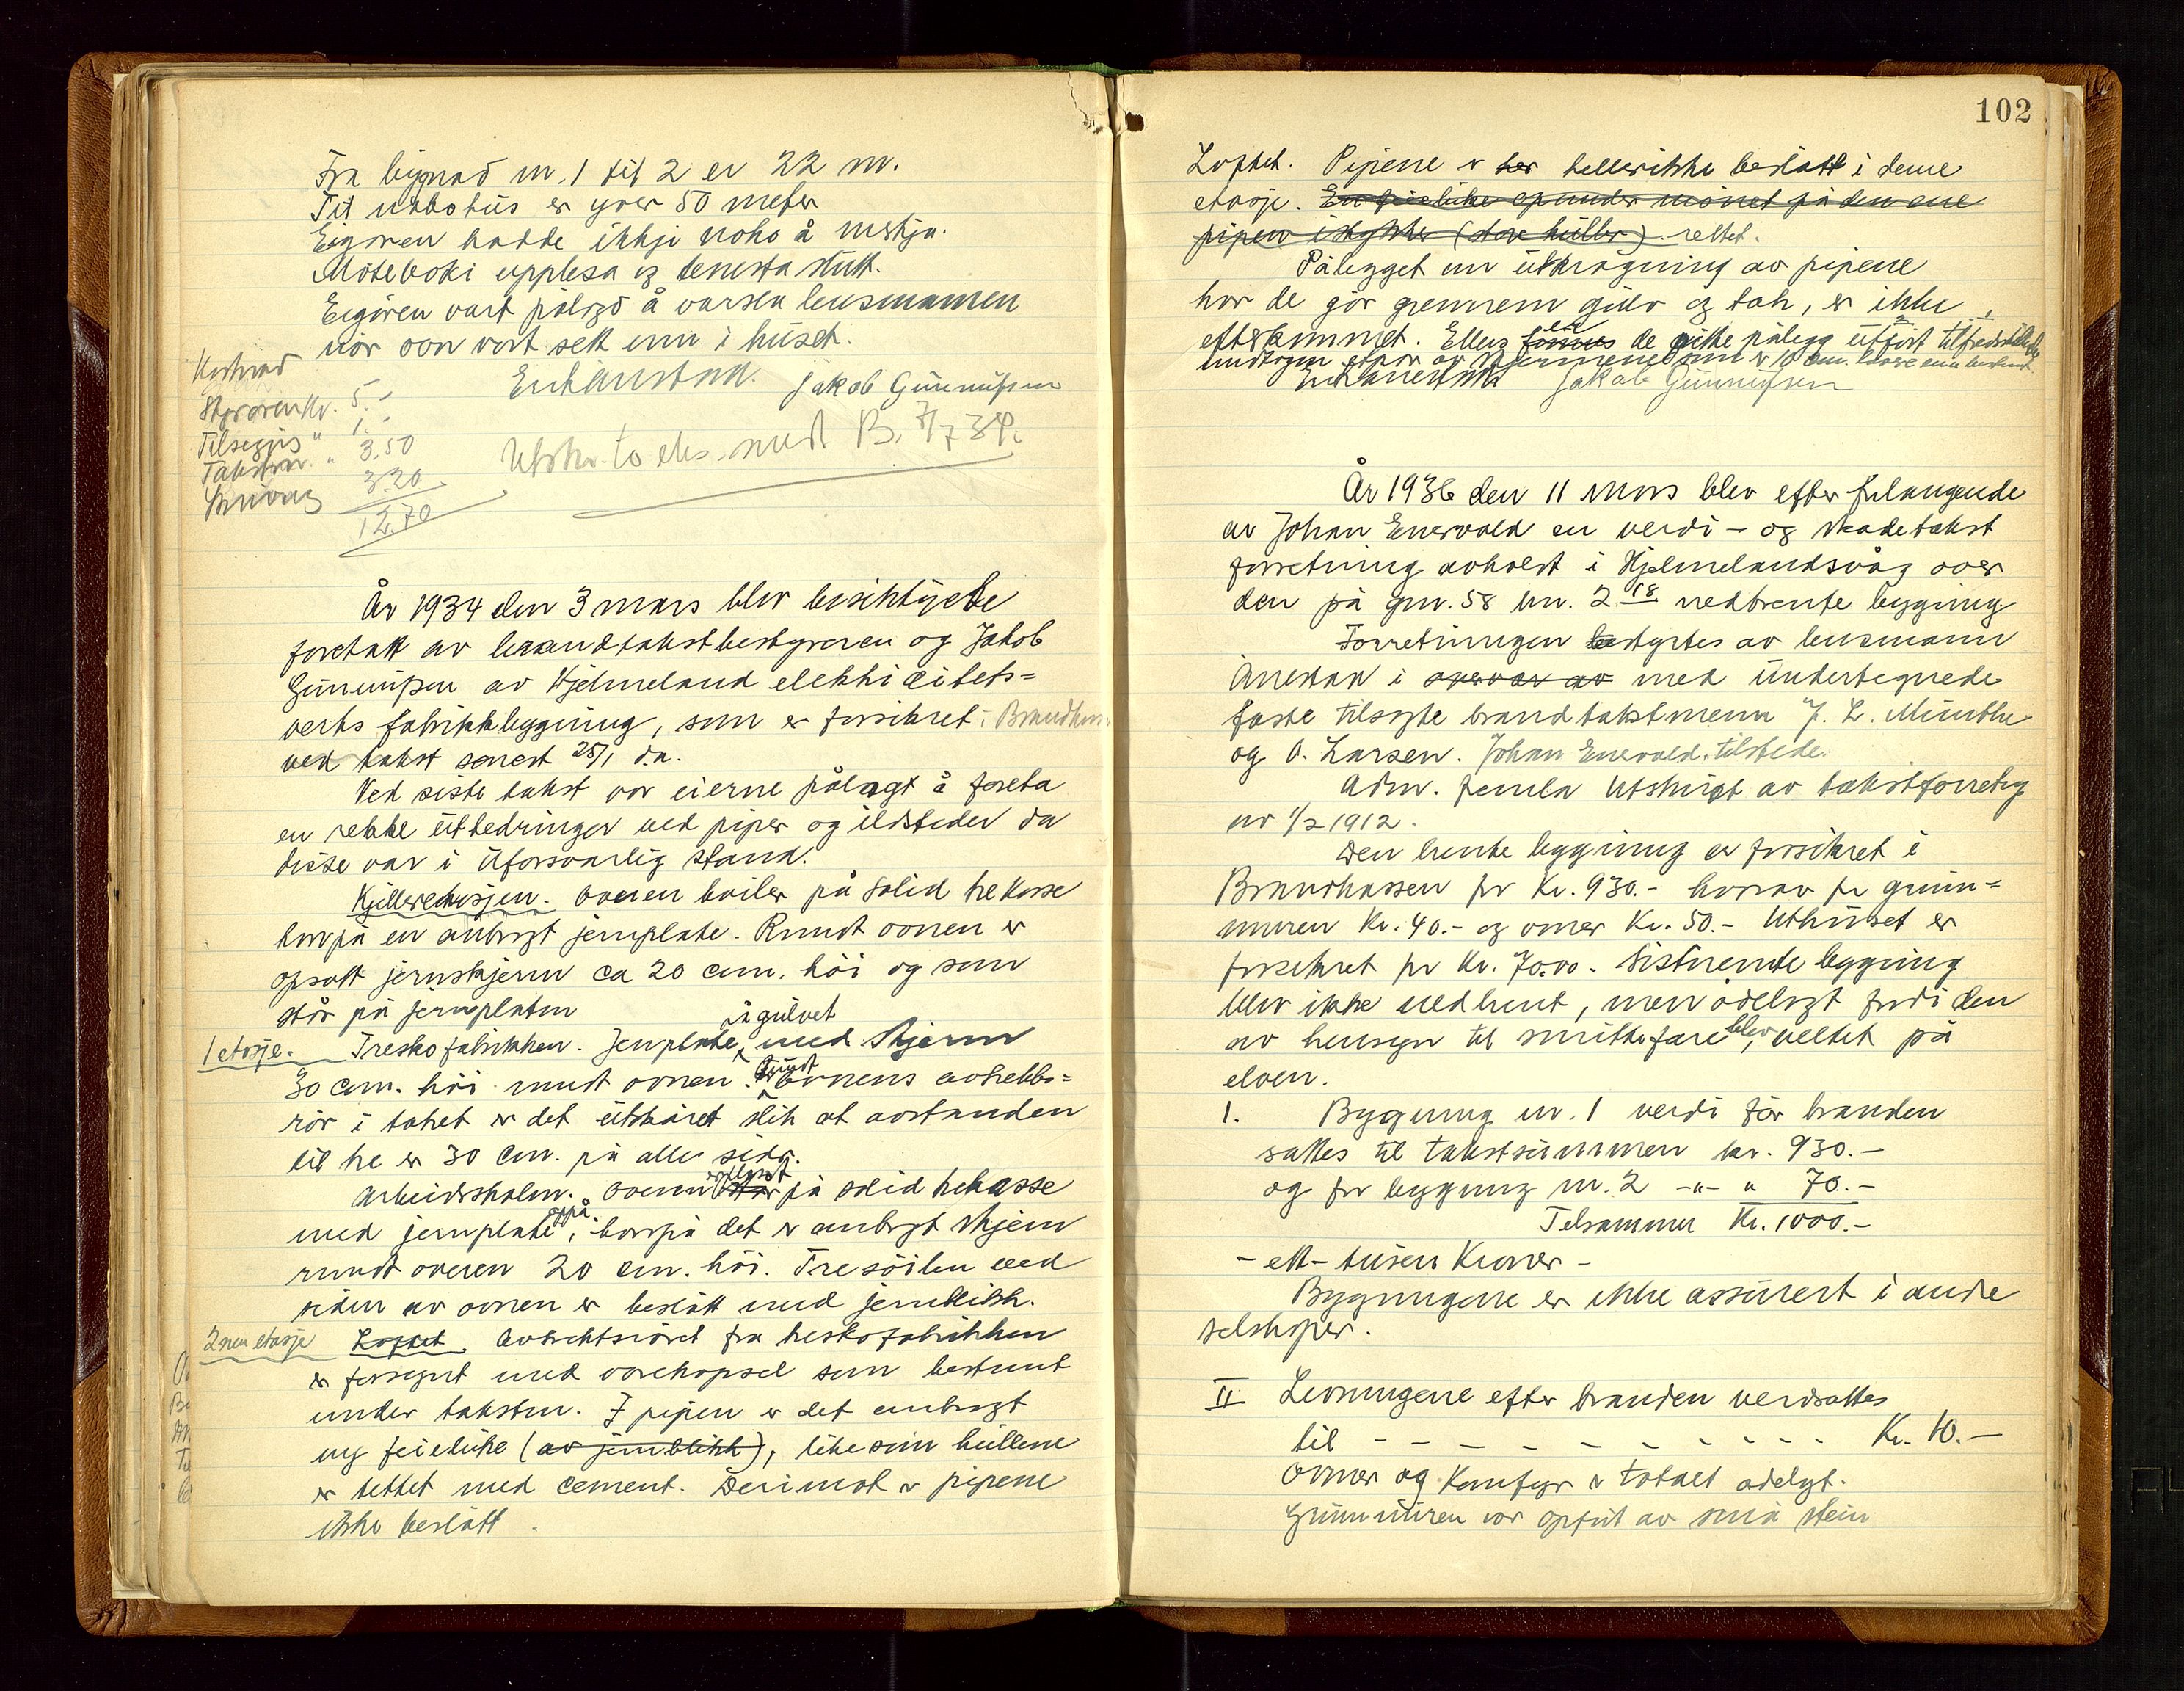 Fra bygnad nr. 1 til 2 er 22 m.
Til nabohus er yver 50 meter
Eigaren hadde ikkje noko å merkja.
Möteboki upplesa og tenesta slutt.
Eigaren vart pålagd å varsla lensmannen
når ovn vert sett inn i huset.
Jakob Gunnufsen
Kostnad
Styraren Kr. 5.-
Tilsegjis " 1.-
Takstm. " 3,50
3.20
12.70
Utskr. to eks. sendt B. 7/7 34.
År 1934 den 3 mars blev besiktigelse
foretatt av brandtakstbestyreren og Jakob
Gunnufsen av Hjelmeland elektricitets=
verks fabrikkbygning, som er forsikret i Brandkas.
ved takst senest 25/1 d.a.
Ved siste takst var eierne pålagt å foreta
en rekke utbedringer ved piper og ildsteder da
disse var i uforsvarlig stand.
Kjelleretasjen. Ovenen hviler på solid trekasse
hvorpå en anbragt jernplate. Rundt ovnen er
opsatt jernskjerm ca 20 cm. höi og som
står på jernplaten
1 etasje. Treskofabrikken. Jernplate på gulvet med skjerm
30 cm. höi rundt ovnen. Rundt ovnens avtrekks=
rör i taket er det utskåret slik at avstanden
til tre er 30 cm. på alle sider.
Arbeidsskolen. Ovenen står på solid trekasse
med jernplate oppå, hvorpå det er anbragt skjerm
rundt ovenen 20 cm. höi. Tresöilen ved
siden av ovnen er beslått med jernblikk.
2nen etasje Loftet Avtrekksröret fra treskofabrikken
er forsynt med varekapsel som bestemt
under taksten. I pipen er det anbragt
ny feieluke (av jernblikk), likesom hullene
er tettet med cement. Derimot er pipene
ikke beslått.
102
Loftet. Pipene er her hellerikke beslått i denne
etasje. En feieluke op under mönet på den ene
pipen i stykker (store huller). rettet.
Pålegget om utkragning av pipene
hvor de går gjennem gulv og tak, er ikke
efterkommet. Ellers er de gitte pålegg utfört tilfredsstillende
undtagen etpar av skjermene som er 10 cm. lavere enn bestemt.
Jakob Gunnufsen
År 1936 den 11 mars blev efter forlangende
av Johan Enervold en verdi- og skadetakst
forretning avholdt i Hjelmelandsvåg over
den på gnr. 58 bnr. 2 18 nedbrente bygning
Forretningen bestyrtes av lensmann
Ånestad i overvær av med undertegnede
faste tilsagte brandtakstmenn J. L. Münthe
og O. Larsen. Johan Enervold. tilstede.
Adm. fremla utskrift av takstforretng
av 1/2 1912.
Den brente bygning er forsikret i
Brandkassen for Kr. 930.- hvorav for grunn=
muren Kr. 40.- og ovner Kr. 50.- Uthuset er
forsikret for Kr. 70.00. Sistnevnte bygning
blev ikke nedbrent, men ödelagt fordi den
av hensyn til smittefare blev, veltet på
elven.
1. Bygning nr. 1 verdi för branden
sattes til takstsummen kr. 930.-
og for bygning nr. 2 -"- " 70.-
Tilsammen Kr. 1000.-
- ett - tusen Kroner -
Bygningene er ikke assurert i andre
selskaper.
II Levningene efter branden verdsattes
til - - - - - - - - - - - - Kr. 10.-
Ovner og Komfyr er totalt ödelagt.
Grunnmuren var opfört av små stein